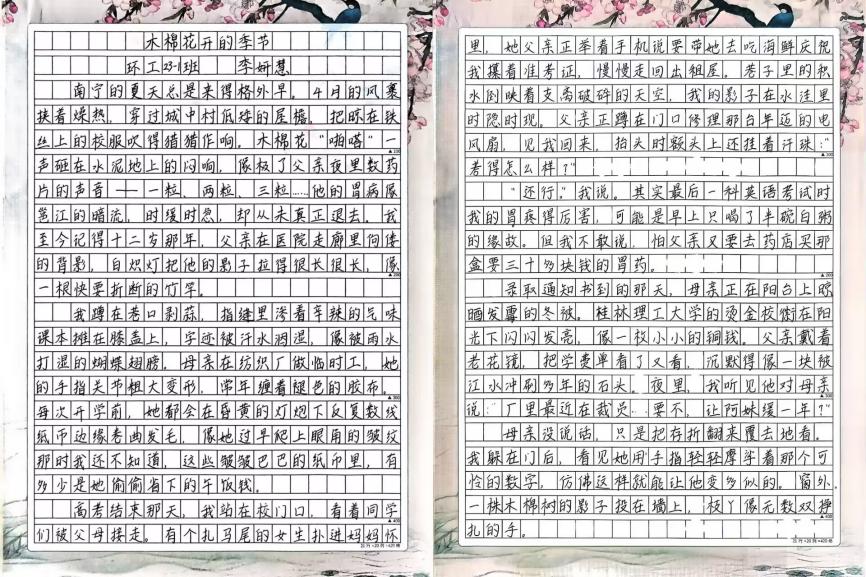 木棉花开的季节
环工23-1班 李妍慧
南宁的夏天总是来得格外早。4月的风裹
挟着燥热,穿过城中村低矮的屋檐。把晾在铁
丝上的校服吹得猎猎作响。木棉花“啪嗒”一
声砸在水泥地上的闷响,像极了父亲夜里数药
片的声音——一粒、两粒、三粒……他的胃病像
邕江的暗流,时缓时急,却从未真正退去。我
至今记得十二岁那年,父亲在医院走廊里佝偻
的背影,白炽灯把他的影子拉得很长很长,像
一根快要折断的竹竿。
我蹲在巷口剥蒜,指缝里渗着辛辣的气味
课本摊在膝盖上,字迹被汗水洇湿,像被雨水
打湿的蝴蝶翅膀。母亲在纺织厂做临时工,她
的手指关节粗大变形,常年缠着褪色的胶布。
每次开学前,她都会在昏黄的灯炮下反复数钱
纸币边缘卷曲发毛,像她过早爬上眼角的皱纹
那时我还不知道,这些皱皱巴巴的纸币里,有
多少是她偷偷省下的午饭钱。
高考结束那天,我站在校门口,看着同学
们被父母接走。有个扎马尾的女生扑进妈妈怀
里,她父亲正举着手机说要带她去吃海鲜庆祝
我攥着准考证,慢慢走回出租屋。巷子里的积
水倒映着支离破碎的天空,我的影子在水洼里
时隐时现。父亲正蹲在门口修理那台年迈的电
风扇,见我回来,抬头时额头上还挂着汗珠:“
考得怎么样?”
“还行。”我说。其实最后一科英语考试时
我的胃疼得厉害,可能是早上只喝了半碗白粥
的缘故。但我不敢说,怕父亲又要去药店买那
盒要三十多块钱的胃药。
录取通知书到的那天,母亲正在阳台上晾
晒发霉的冬被。桂林理工大学的烫金校徽在阳
光下闪闪发亮,像一枚小小的铜钱。父亲戴着
老花镜,把学费单看了又看,沉默得像一块被
江水冲刷多年的石头。夜里,我听见他对母亲
说:“厂里最近在裁员……要不,让阿妹缓一年?”
母亲没说话,只是把存折翻来覆去地看。
我躲在门后,看见她用手指轻轻摩挲着那个可
怜的数字,仿佛这样就能让他变多似的。窗外,
一株木棉树的影子投在墙上,枝丫像无数双挣
扎的手。
20行×20列=400格
20行×20列=400格